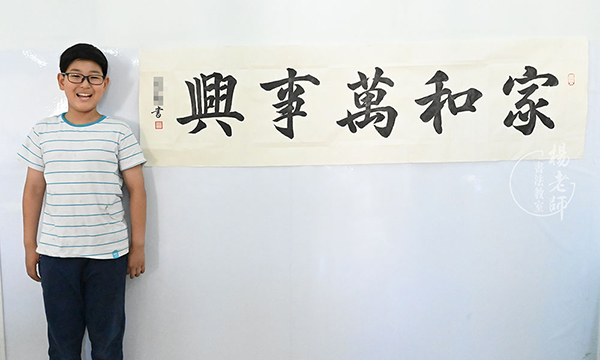 家和萬事興
書
楊老師
書法教室